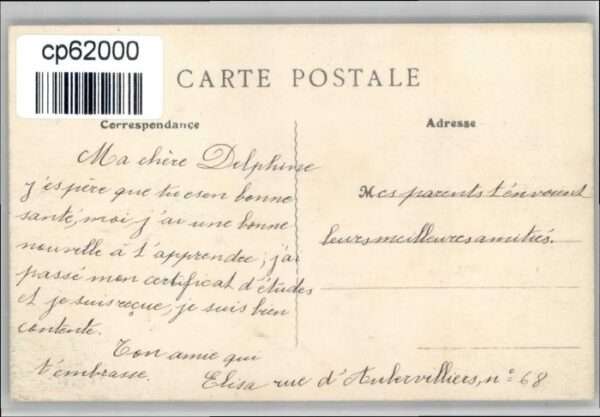 cp62000
CARTE POSTALE
Correspondance
Ma chère Delphine
j'espère que tu es en bonne
santé, moi j'ai une bonne
nouvelle à t'apprendre; j'ai
passé mon certificat d'études
et je suis reçue, je suis bien
contente.
Ton amie qui
t'embrasse.
Elisa rue d'Aubervilliers, n° 68
Adresse
Mes parents t'envoient
leurs meilleures amitiés.